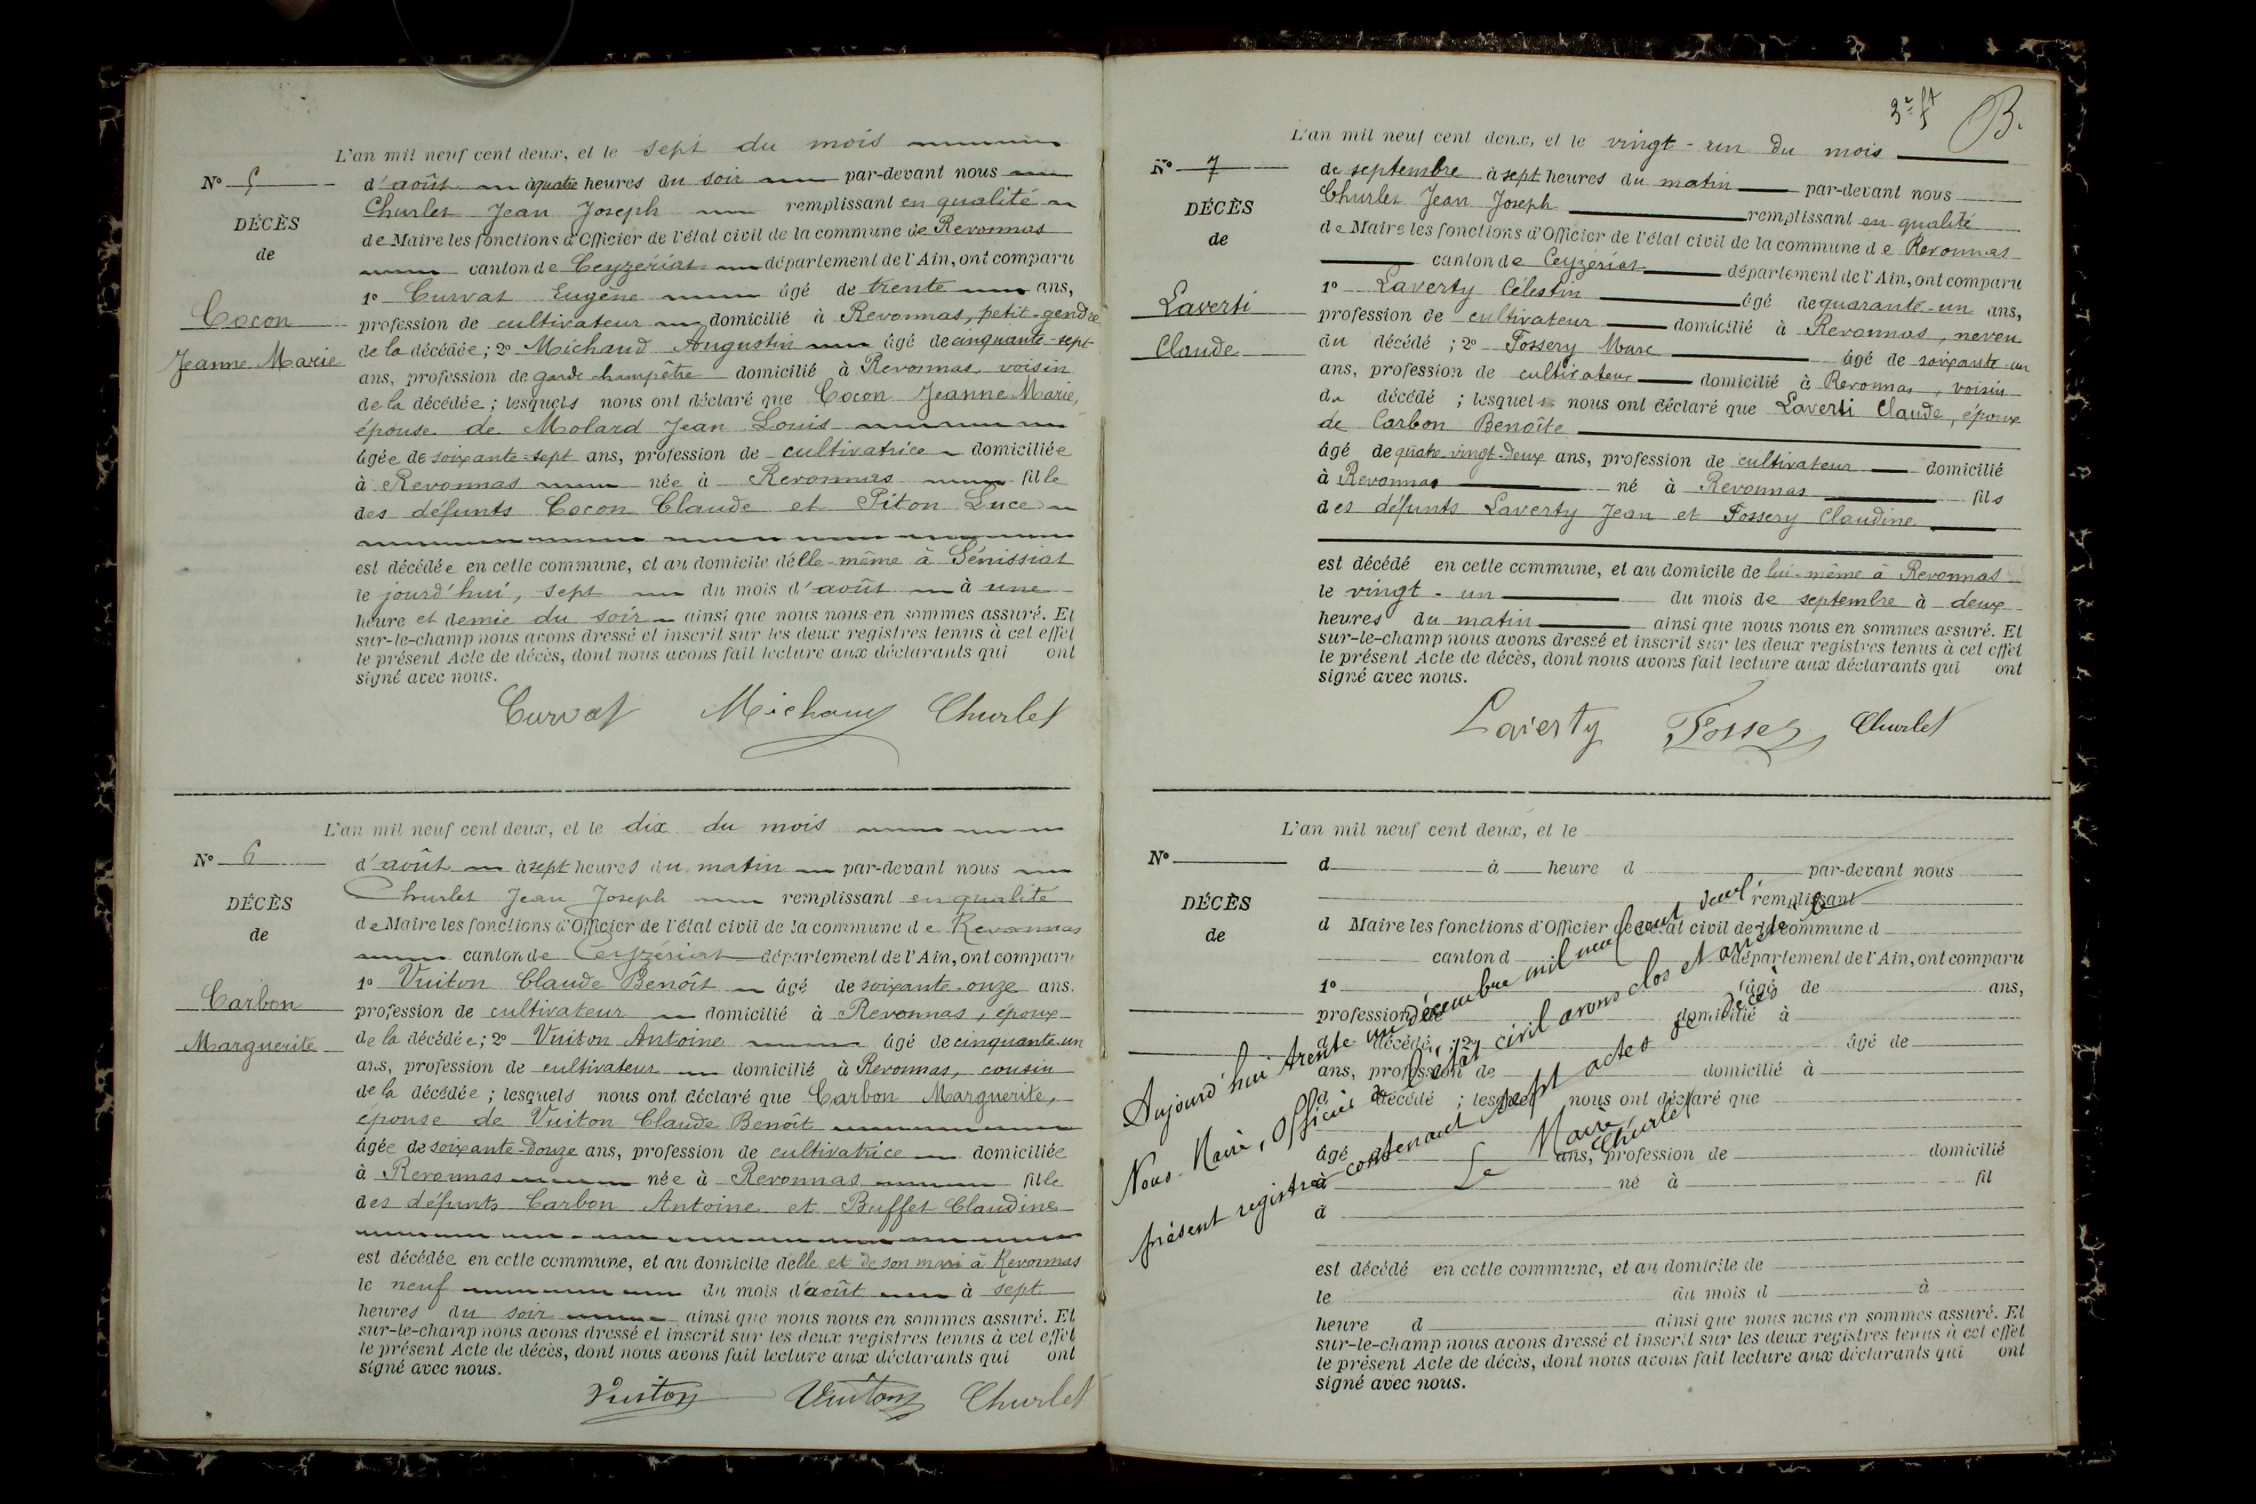 L'an mil neuf cent deux, et le sept du mois
N° 5
d'août à quatre heures du soir par-devant nous
Churlet Jean Joseph remplissant en qualité
DÉCÈS
de Maire les fonctions d'Officier de l'état civil de la commune de Revonnas
de
canton de Ceyzériat département de l'Ain, ont comparu
1° Curvat Eugène âgé de trente ans,
Cocon
profession de cultivateur domicilié à Revonnas, petit-gendre
Jeanne Marie
de la décédée ; 2° Michaud Augustin âgé de cinquante-sept
ans, profession de garde champêtre domicilié à Revonnas voisin
de la décédée ; lesquels nous ont déclaré que Cocon Jeanne Marie,
épouse de Molard Jean Louis
âgée de soixante-sept ans, profession de cultivatrice domiciliée
à Revonnas née à Revonnas fille
des défunts Cocon Claude et Piton Luce
est décédée en cette commune, et au domicile d'elle-même à Sénissiat
le jourd'hui, sept du mois d'août à une
heure et demie du soir ainsi que nous nous en sommes assuré. Et
sur-le-champ nous avons dressé et inscrit sur les deux registres tenus à cet effet
le présent Acte de décès, dont nous avons fait lecture aux déclarants qui ont
signé avec nous.
Curvat Michaud Churlet
L'an mil neuf cent deux, et le dix du mois
N° 6
d'août à sept heures du matin par-devant nous
Churlet Jean Joseph remplissant en qualité
DÉCÈS
de Maire les fonctions d'Officier de l'état civil de la commune de Revonnas
de
canton de Ceyzériat département de l'Ain, ont comparu
1° Vuiton Claude Benoît âgé de soixante-onze ans.
Carbon
profession de cultivateur domicilié à Revonnas, époux
Marguerite
de la décédée ; 2° Vuiton Antoine âgé de cinquante-un
ans, profession de cultivateur domicilié à Revonnas, cousin
de la décédée ; lesquels nous ont déclaré que Carbon Marguerite,
épouse de Vuiton Claude Benoît
âgée de soixante-douze ans, profession de cultivatrice domiciliée
à Revonnas née à Revonnas fille
des défunts Carbon Antoine et Buffet Claudine
est décédée en cette commune, et au domicile d'elle et de son mari à Revonnas
le neuf du mois d'août à sept
heures du soir ainsi que nous nous en sommes assuré. Et
sur-le-champ nous avons dressé et inscrit sur les deux registres tenus à cet effet
le présent Acte de décès, dont nous avons fait lecture aux déclarants qui ont
signé avec nous.
Vuiton Vuiton Churlet
3e ft B.
L'an mil neuf cent deux, et le vingt-un du mois
N° 7
de septembre à sept heures du matin par-devant nous
Churlet Jean Joseph remplissant en qualité
DÉCÈS
de Maire les fonctions d'Officier de l'état civil de la commune de Revonnas
de
canton de Ceyzériat département de l'Ain, ont comparu
1° Laverty Célestin âgé de quarante-un ans,
Laverti
profession de cultivateur domicilié à Revonnas, neveu
Claude
du décédé ; 2° Fossery Marc âgé de soixante-un
ans, profession de cultivateur domicilié à Revonnas, voisin
du décédé ; lesquels nous ont déclaré que Laverti Claude, époux
de Carbon Benoîte
âgé de quatre-vingt-deux ans, profession de cultivateur domicilié
à Revonnas né à Revonnas fils
des défunts Laverty Jean et Fossery Claudine
est décédé en cette commune, et au domicile de lui-même à Revonnas
le vingt-un du mois de septembre à deux
heures du matin ainsi que nous nous en sommes assuré. Et
sur-le-champ nous avons dressé et inscrit sur les deux registres tenus à cet effet
le présent Acte de décès, dont nous avons fait lecture aux déclarants qui ont
signé avec nous.
Laverty Churlet
L'an mil neuf cent deux, et le
N°
d à heure d par-devant nous
remplissant
DÉCÈS
d Maire les fonctions d'Officier de l'état civil de la commune d
de
canton d département de l'Ain, ont comparu
1° âgé de ans,
profession de domicilié à
d décédé ; 2° âgé de
ans, profession de domicilié à
d décédé ; lesquels nous ont déclaré que
âgé de ans, profession de domicilié
à né à fil
d
est décédé en cette commune, et au domicile de
le du mois d à
heure d ainsi que nous nous en sommes assuré. Et
sur-le-champ nous avons dressé et inscrit sur les deux registres tenus à cet effet
le présent Acte de décès, dont nous avons fait lecture aux déclarants qui ont
signé avec nous.
Aujourd'hui trente un décembre mil neuf cent deux
Nous Maire, Officier de l'état civil avons clos et arrêté le
présent registre contenant sept actes de décès
Le Maire
Churlet